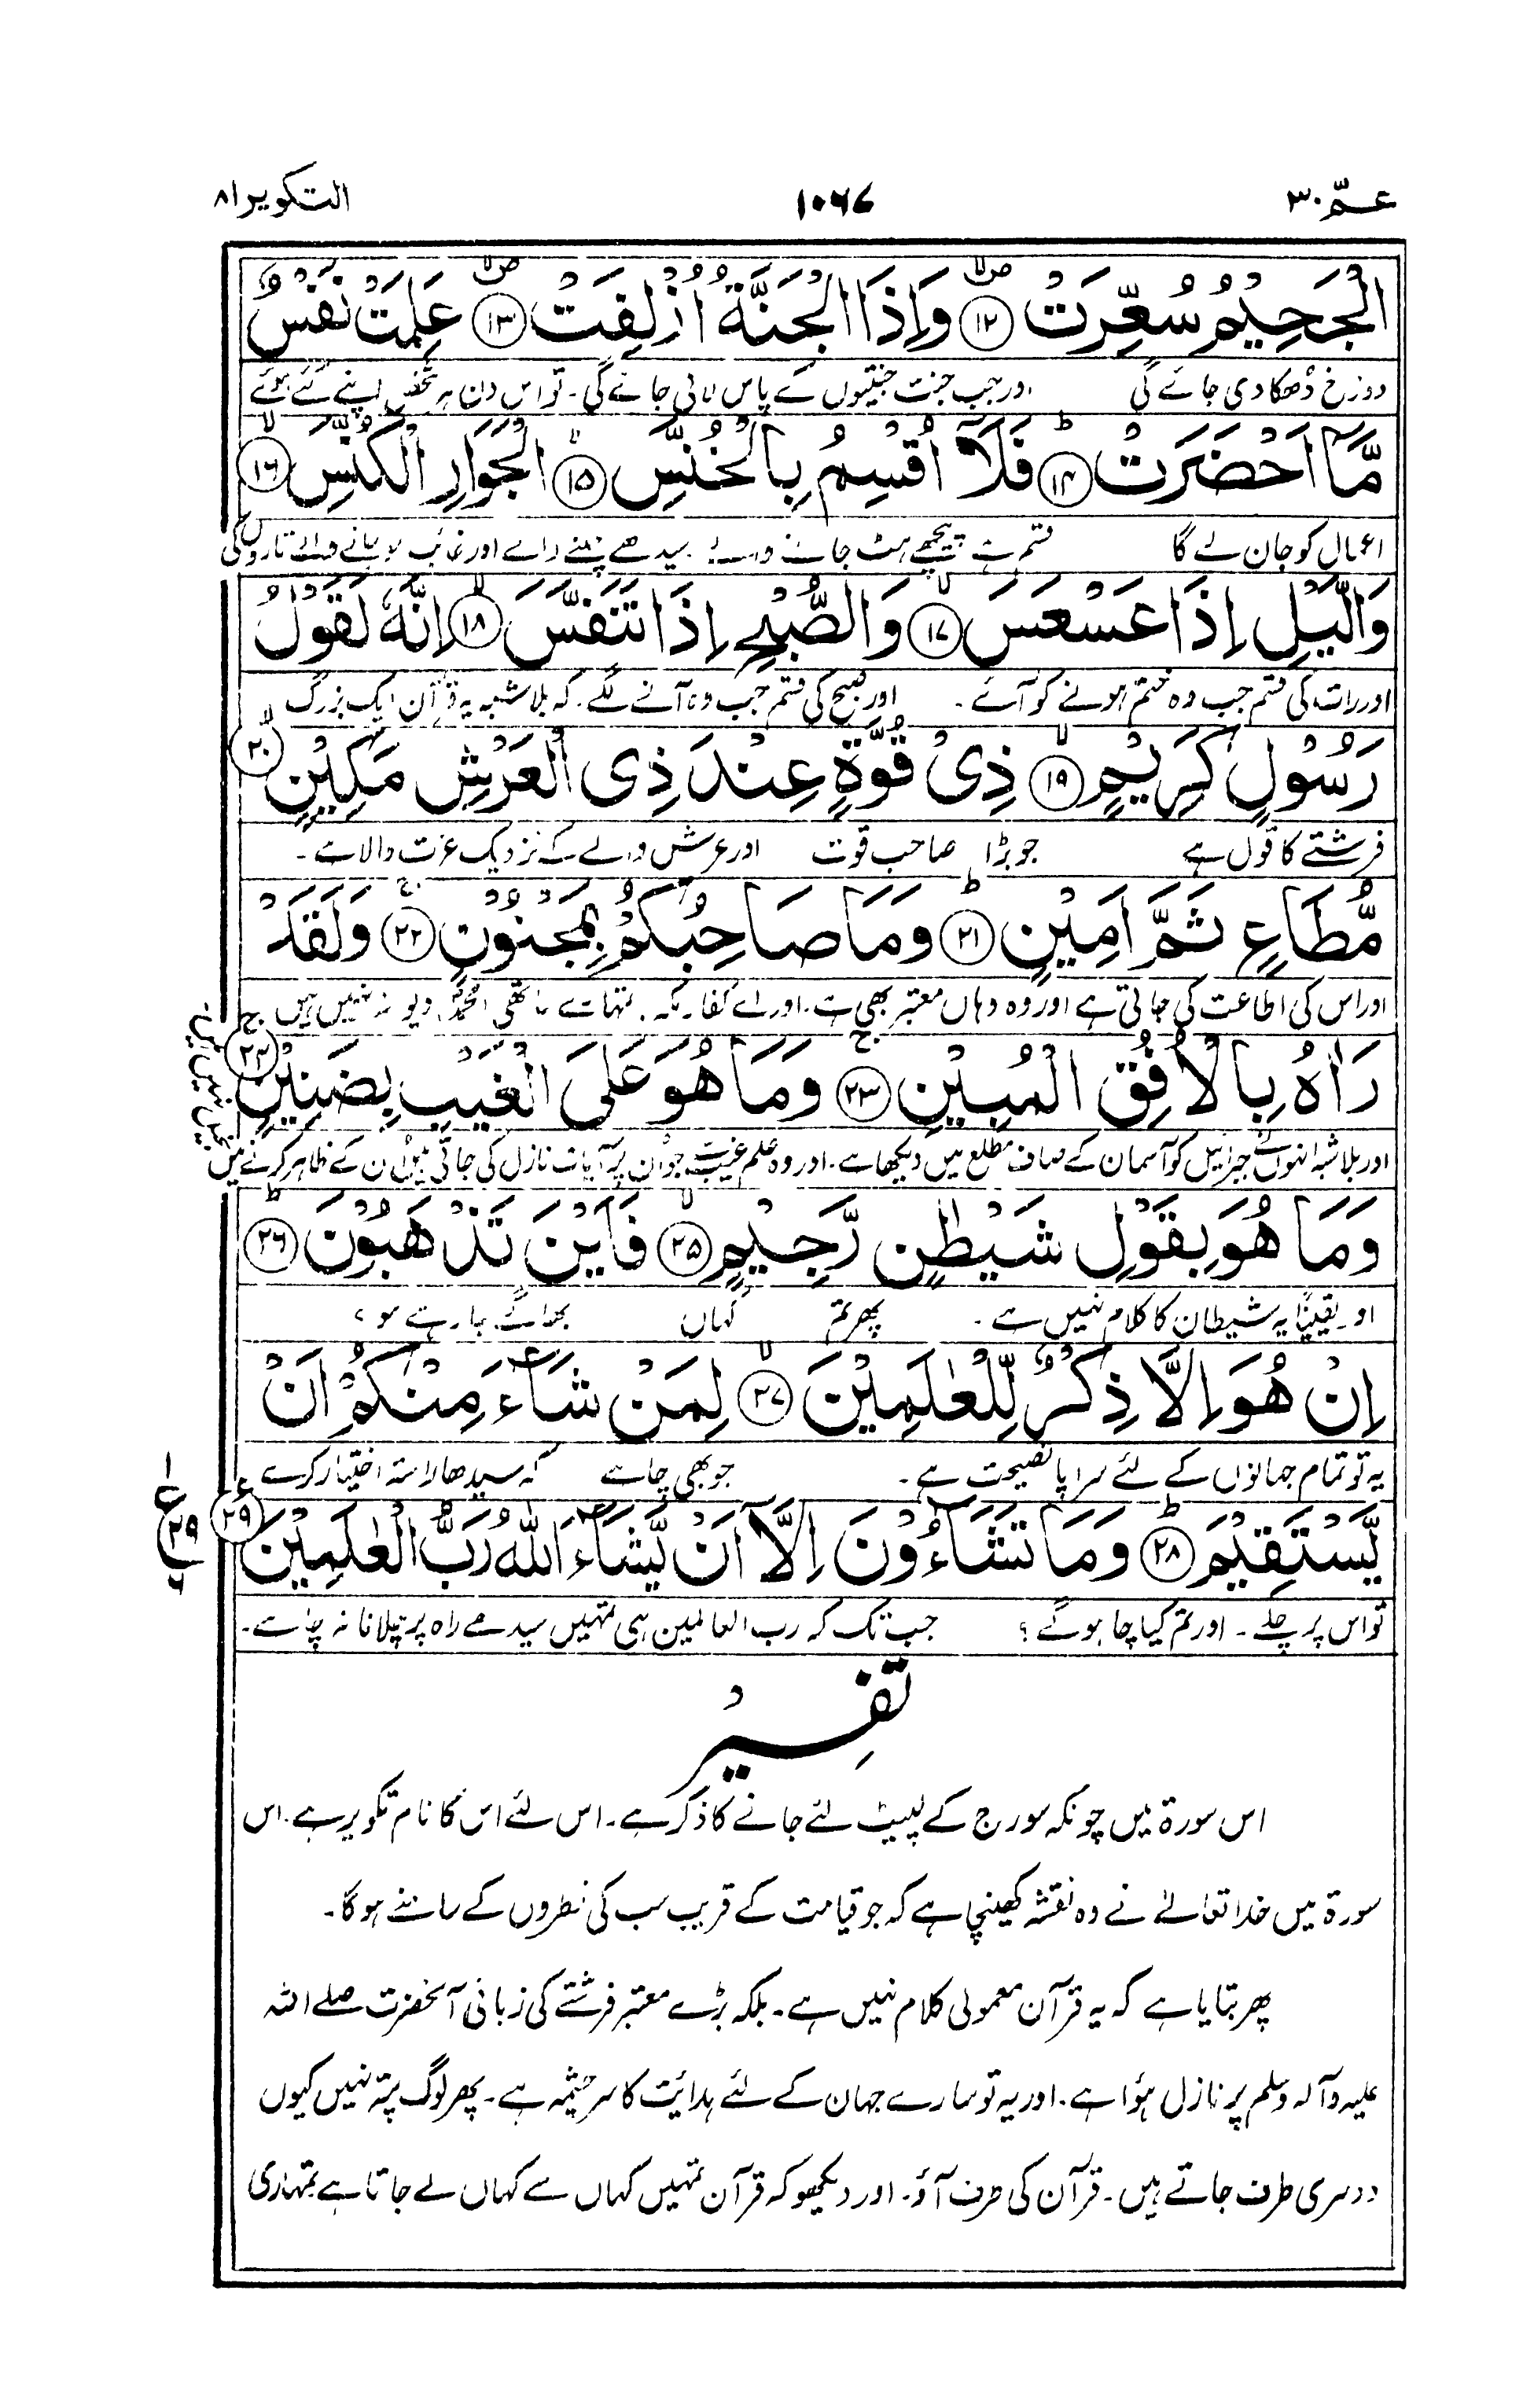 عـمّ ٣٠
١٠٦٧
التکویر ٨١
الْجَحِيْمُ سُعِّرَتْ ﴿١٢﴾ وَاِذَا الْجَنَّةُ اُزْلِفَتْ ﴿١٣﴾ عَلِمَتْ نَفْسٌ
دوزخ دھکا دی جائے گی اور جب جنت جنتیوں کے پاس لائی جائے گی۔ تو اس دن ہر شخص اپنے کئے ہوئے
مَّاۤ اَحْضَرَتْ ﴿١٤﴾ فَلَاۤ اُقْسِمُ بِالْخُنَّسِ ﴿١٥﴾ الْجَوَارِ الْكُنَّسِ ﴿١٦﴾
اعمال کو جان لے گا قسم ہے پیچھے ہٹ جانے والے سیدھے چلنے والے اور غائب ہو جانے والے تاروں کی
وَالَّيْلِ اِذَا عَسْعَسَ ﴿١٧﴾ وَالصُّبْحِ اِذَا تَنَفَّسَ ﴿١٨﴾ اِنَّهٗ لَقَوْلُ
اور رات کی قسم جب وہ ختم ہونے کو آئے۔ اور صبح کی قسم جب وہ آنے لگے۔ کہ بلا شبہ یہ قرآن ایک بزرگ
رَسُوْلٍ كَرِيْمٍ ﴿١٩﴾ ذِىْ قُوَّةٍ عِنْدَ ذِى الْعَرْشِ مَكِيْنٍ ﴿٢٠﴾
فرشتے کا قول ہے جو بڑا صاحب قوت اور عرش والے کے نزدیک عزت والا ہے۔
مُّطَاعٍ ثَمَّ اَمِيْنٍ ﴿٢١﴾ وَمَا صَاحِبُكُمْ بِمَجْنُوْنٍ ﴿٢٢﴾ وَلَقَدْ
اور اس کی اطاعت کی جاتی ہے اور وہ وہاں معتبر بھی ہے۔ اور اے کفار مکہ۔ تمہارے ساتھی محمدؐ دیوانہ نہیں ہیں
رَاٰهُ بِالْاُفُقِ الْمُبِيْنِ ﴿٢٣﴾ وَمَا هُوَ عَلَى الْغَيْبِ بِضَنِيْنٍ ﴿٢٤﴾
اور بلاشبہ انہوں نے جبرائیل کو آسمان کے صاف مطلع میں دیکھا ہے۔ اور وہ علم غیب سے جو ان پر آیات نازل کی جاتی ہیں ان کے ظاہر کرنے میں
بخیل نہیں ہیں۔
وَمَا هُوَ بِقَوْلِ شَيْطٰنٍ رَّجِيْمٍ ﴿٢٥﴾ فَاَيْنَ تَذْهَبُوْنَ ﴿٢٦﴾
اور یقیناً یہ شیطان کا کلام نہیں ہے۔ پھر تم کہاں بھاگے جا رہے ہو؟
اِنْ هُوَ اِلَّا ذِكْرٌ لِّلْعٰلَمِيْنَ ﴿٢٧﴾ لِمَنْ شَآءَ مِنْكُمْ اَنْ
یہ تو تمام جہانوں کے لئے سراپا نصیحت ہے۔ جو بھی چاہے کہ سیدھا راستہ اختیار کرے
يَّسْتَقِيْمَ ﴿٢٨﴾ وَمَا تَشَآءُوْنَ اِلَّاۤ اَنْ يَّشَآءَ اللّٰهُ رَبُّ الْعٰلَمِيْنَ ﴿٢٩﴾
١
ع
٢٩
٦
تو اس پر چلے۔ اور تم کیا چاہو گے؟ جب تک کہ رب العالمین ہی تمہیں سیدھے راہ پر چلانا نہ چاہے۔
تفسیر
اس سورۃ میں چونکہ سورج کے لپیٹ لئے جانے کا ذکر ہے۔ اس لئے اس کا نام تکویر ہے۔ اس
سورۃ میں خدا تعالےٰ نے وہ نقشہ کھینچا ہے کہ جو قیامت کے قریب سب کی نظروں کے سامنے ہو گا۔
پھر بتایا ہے کہ یہ قرآن معمولی کلام نہیں ہے۔ بلکہ بڑے معتبر فرشتے کی زبانی آنحضرت صلے اللہ
علیہ وآلہ وسلم پر نازل ہؤا ہے۔ اور یہ تو سارے جہان کے لئے ہدائیت کا سرچشمہ ہے۔ پھر لوگ پتہ نہیں کیوں
دوسری طرف جاتے ہیں۔ قرآن کی طرف آؤ۔ اور دیکھو کہ قرآن تمہیں کہاں سے کہاں لے جاتا ہے تمہاری